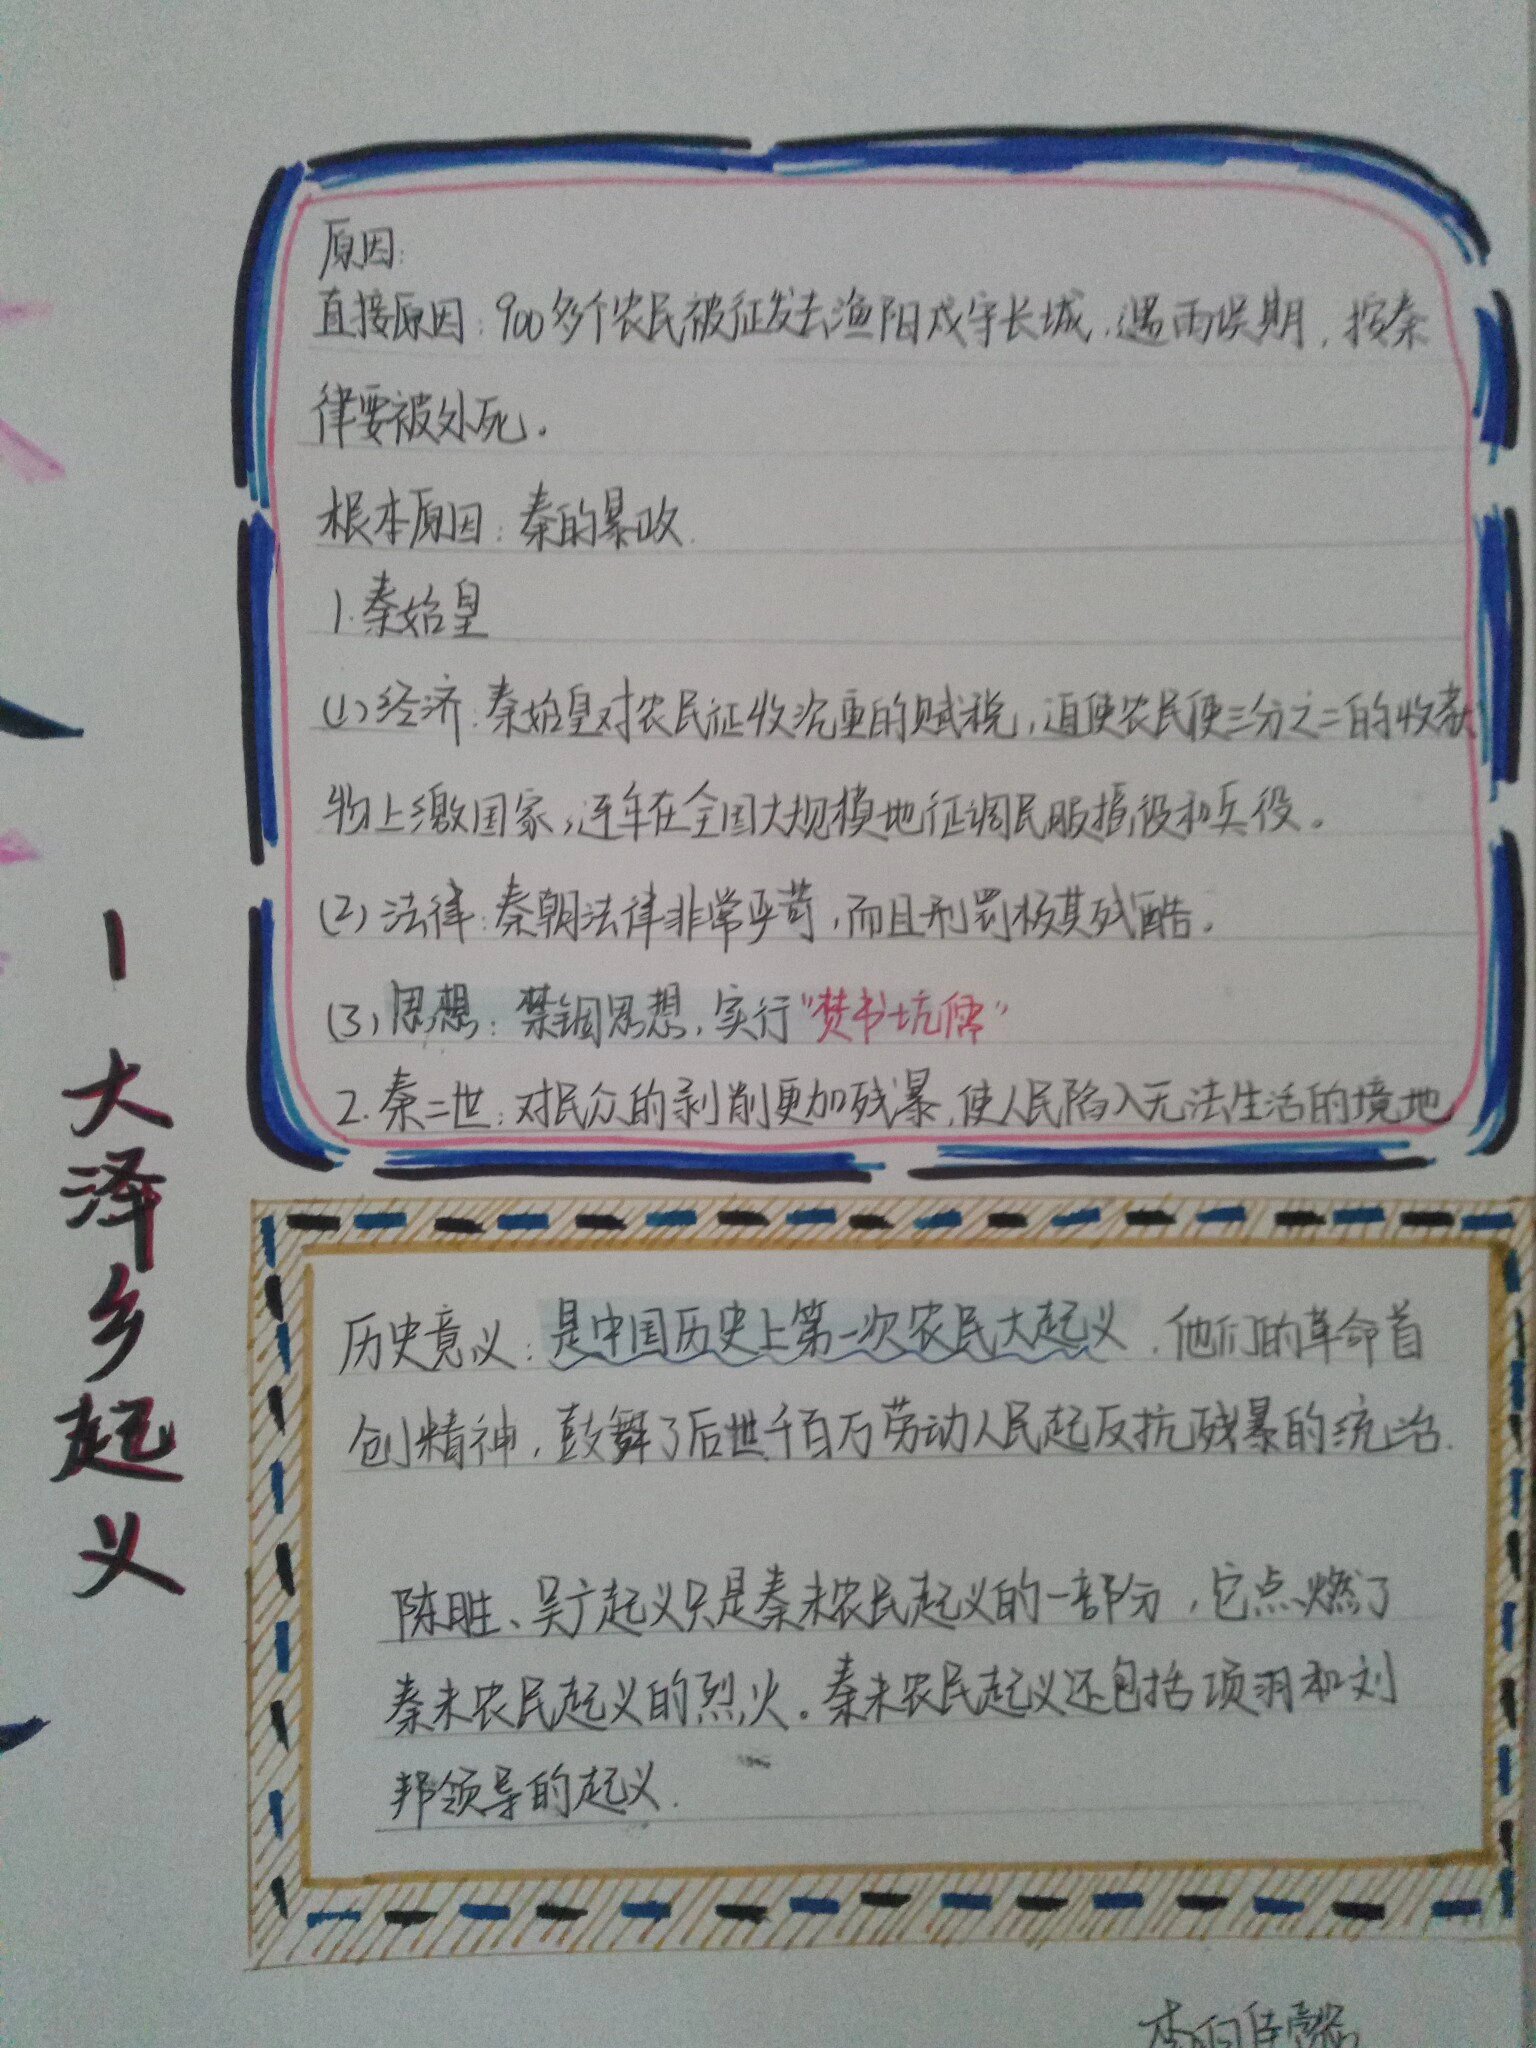 原因:
直接原因:900多个农民被征发去渔阳戍守长城,遇雨误期,按秦
律要被处死.
根本原因:秦的暴政.
1.秦始皇
(1)经济:秦始皇对农民征收沉重的赋税,迫使农民使三分之二的收获
物上缴国家,连年在全国大规模地征调民服徭役和兵役。
(2)法律:秦朝法律非常严苛,而且刑罚极其残酷.
(3)思想:禁锢思想,实行“焚书坑儒”
2.秦二世:对民众的剥削更加残暴,使人民陷入无法生活的境地
历史意义:是中国历史上第一次农民大起义.他们的革命首
创精神,鼓舞了后世千百万劳动人民起反抗残暴的统治.
陈胜、吴广起义只是秦末农民起义的一部分,它点燃了
秦末农民起义的烈火。秦末农民起义还包括项羽和刘
邦领导的起义.
-大泽乡起义